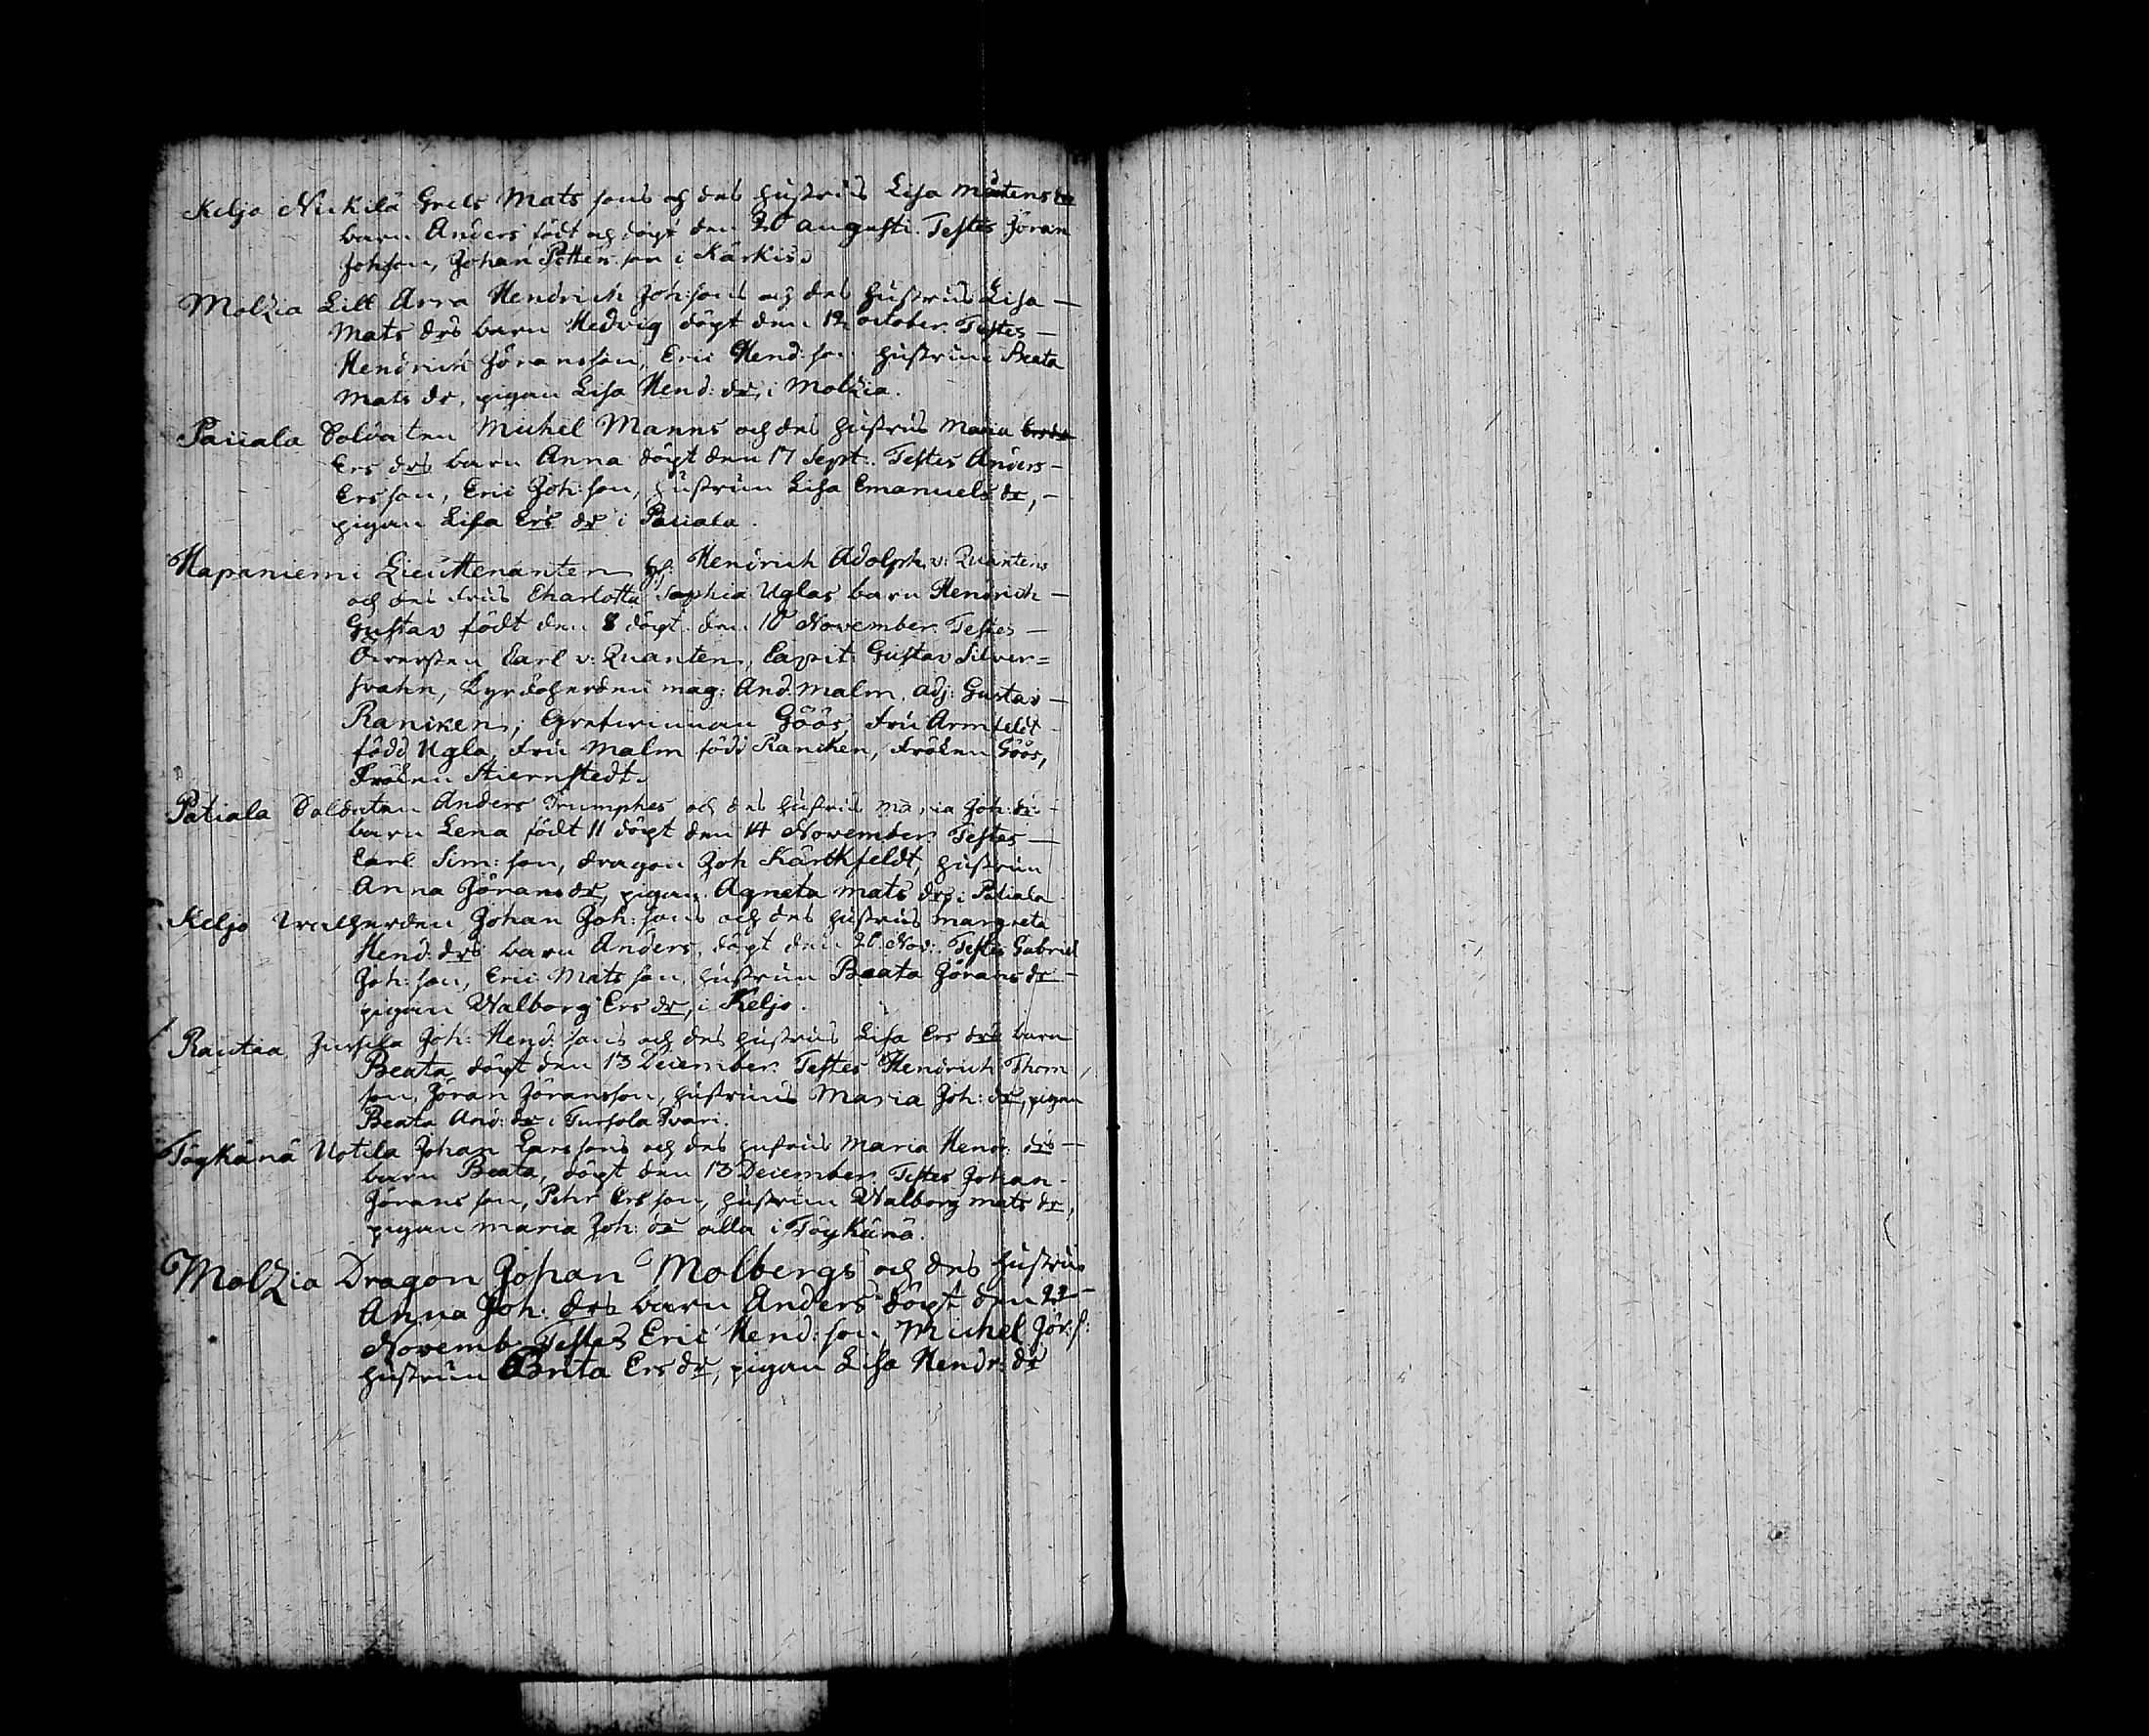 Keljo Nickilä Grels Mats sons och des hustrus Lisa Mårtens dr
barn Anders födt och döpt den 20 augusti. Testes Jöran
Johson, Johan Petter son i Kärkis
Molzia Lill Arra Hendrich Joh:sons och des hustrus Lisa —
Mats drs barn Hedvig döpt den 12 october. Testes —
Hendrich Jöransson, Eric Hend:son hustrun Beata
Mats dr, pigan Lisa Hend: dr, i Molzia.
Pauala Soldaten Michel Manns och des hustrus Maria Ers dr
Ers drs barn Anna döpt den 17 Sept:. Testes Anders —
Ersson, Eric Joh:son, hustrun Lisa Emanuels dr, —
pigan Lisa Ers dr i Pauala.
Hapaniemi Lieuttenanten H: Hendrich Adolph v: Quantens
och des frus Charlotta Sophia Uglas barn Hendrich —
Gustav födt den 8 döpt den 10 November. Testes —
Öwersten Carl v: Quanten, Capit: Gustav Silver=
svahn, Kyrckoherden mag: And. Malm, adj: Gustav —
Rancken, Grefvinnan Göös, fru Armfeldt
född Ugla, fru Malm född Rancken, Fröken Göös,
Fröken Stiernstedt.
Patiala Soldaten Anders Trumphes och des hustrus Maria Joh: drs
barn Lena födt 11 döpt den 14 November. Testes —
Carl Sim:son, dragon Joh Kärckfeldt, hustrun
Anna Jörans dr, pigan Agneta Mats dr, i Patiala
Keljo Walherden Johan Joh:sons och des hustrus Margreta
Hend: drs barn Anders, döpt den 20 Nov:. Testes Gabriel
Joh:son, Eric Mats son, hustrun Beata Jörans dr —
pigan Walborg Ers dr, i Keljo.
Rautaa Jussila Joh: Hend:sons och des hustrus Lisa Ers drs barn
Beata, döpt den 13 December. Testes Hendrich Thom
son, Jöran Jöransson, hustruns Maria Joh: dr, pigan
Beata And: dr i Tursola Svari.
Töykänä Uotila Johan Larssons och des hustrus Maria Hend: drs —
barn Beata, döpt den 13 December. Testes Johan
Jörans son, Pehr Ersson, hustrun Walborg Mats dr,
pigan Maria Joh: dr alla i Töykänä.
Molzia Dragon Johan Molbergs och des hustrus
Anna Joh: drs barn Anders döpt den 22
Novemb: Testes Eric Hend:son, Michel Jör:s:
hustrun Brita Ers dr, pigan Lisa Hendr: dr